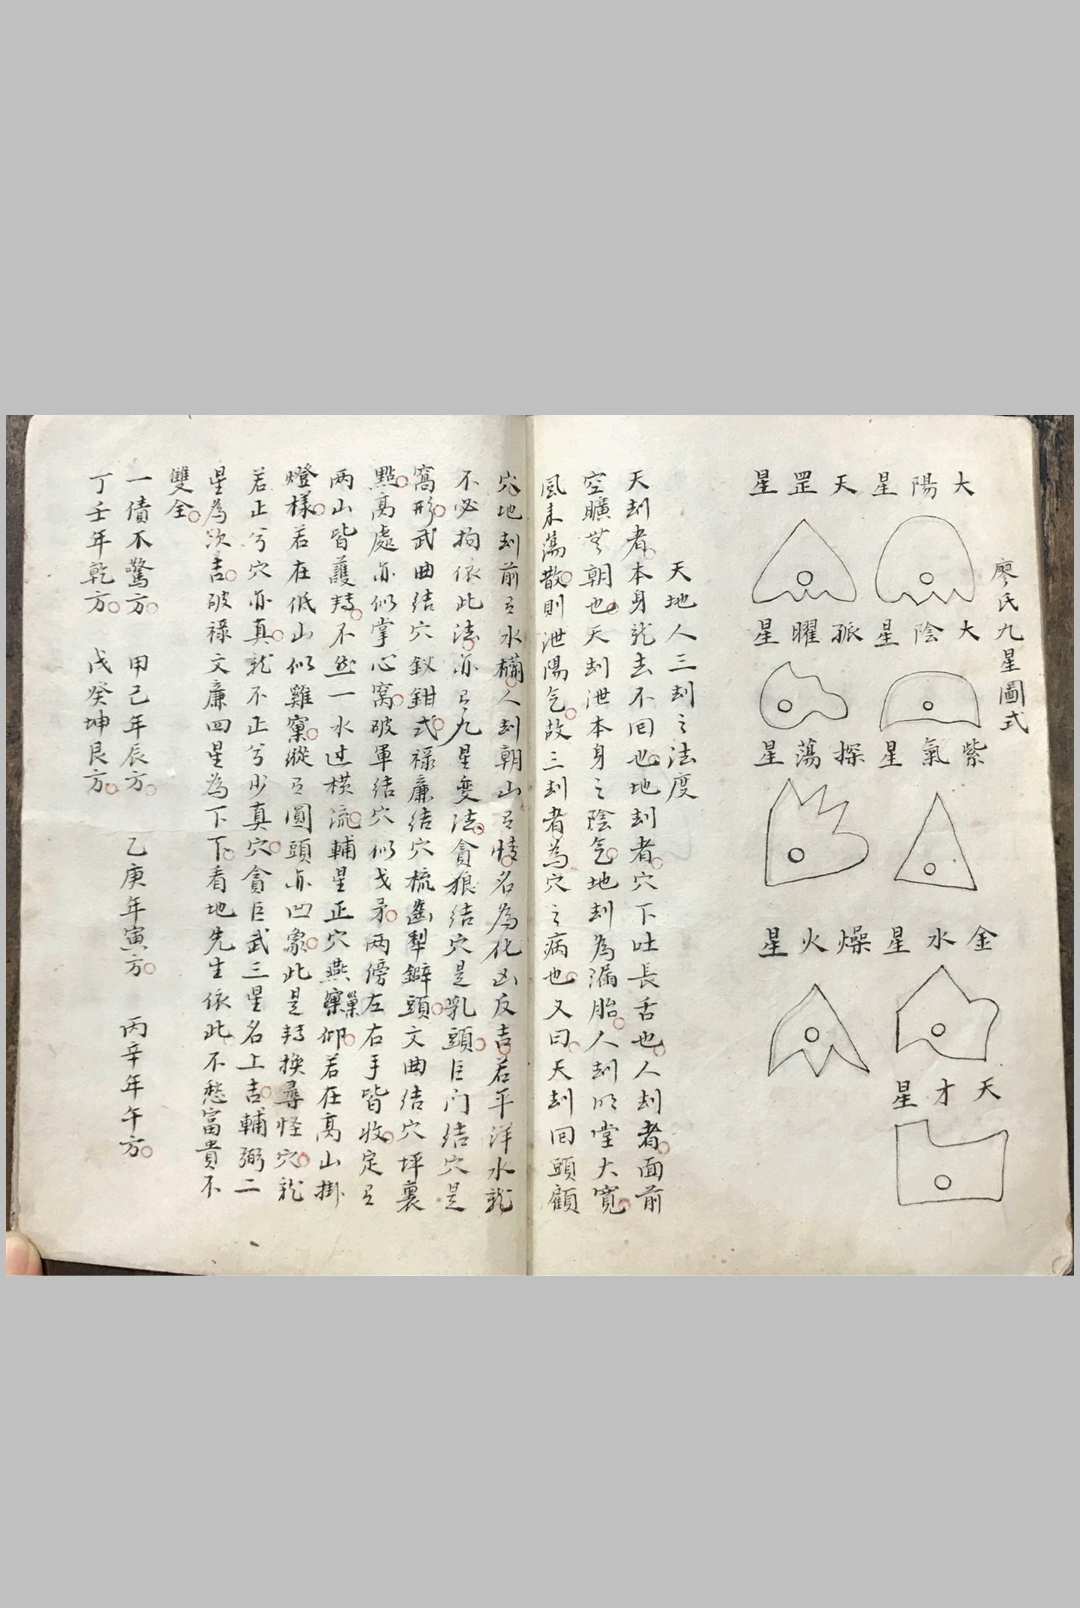 廖氏九星圖式
大陽星
天罡星
大陰星
孤曜星
紫氣星
探蕩星
金水星
燥火星
天才星
天地人三刦之法度
天刦者本身龍去不回也地刦者穴下吐長舌也人刦者面前
空曠無朝也天刦泄本身之陰氣地刦為漏胎人刦明堂大寬
風来蕩散則泄陽气故三刦者為穴之病也又曰天刦回頭顧
穴地刦前有水欄人刦朝山有情名為化凶反吉若平洋水龍
不必拘依此法亦有九星变法貪狼結穴是乳頭巨门結穴是
窩形武曲結穴釵鉗式祿廉結穴梳齒犁鐴頭文曲结穴坪裏
點高處亦似掌心窩破軍结穴似戈矛两傍左右手皆收定有
两山皆護轉不然一水过横流輔星正穴燕窠巢仰若在高山掛
燈樣若在低山似雞窠縱有圓頭亦凹象此是轉换尋怪穴龍
若正兮穴亦真龍不正兮少真穴貪巨武三星名上吉輔弼二
星為次吉破祿文廉四星為下下看地先生依此不愁富貴不
雙全
一債不驚方 甲己年辰方 乙庚年寅方 丙辛年午方
丁壬年乾方 戊癸坤艮方